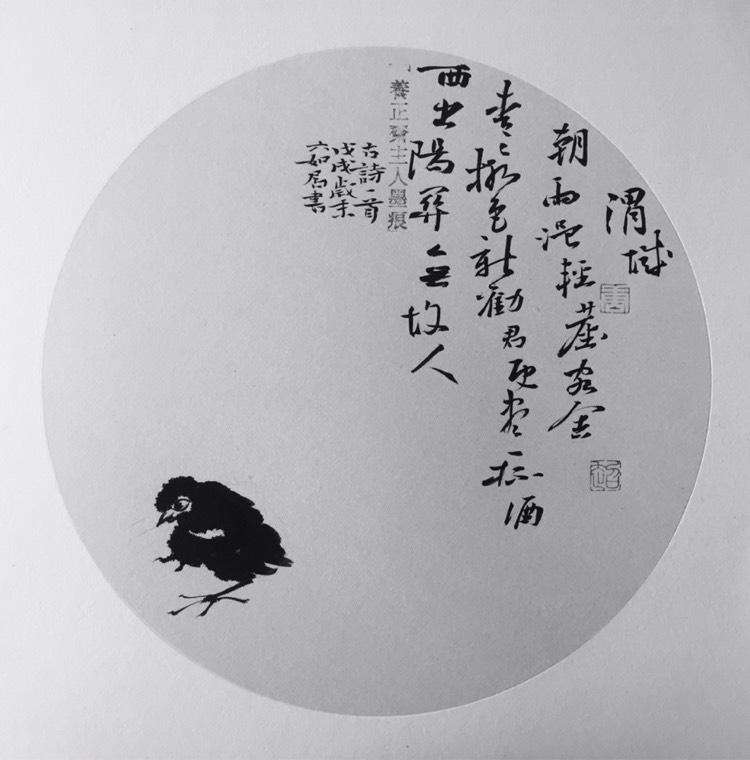 渭城
朝雨浥輕塵客舍
青々柳色新勸君更盡一杯酒
西出陽關無故人
養正齋主人墨痕
古詩一首
戊戌歲末
六如居書